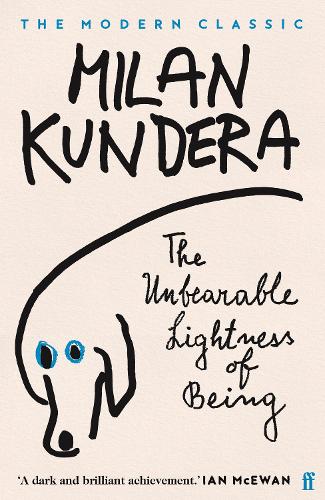 THE MODERN CLASSIC
MILAN
KUNDERA
The
Unbearable
Lightness
of
Being
‘A dark and brilliant achievement.’ IAN McEWAN
ff